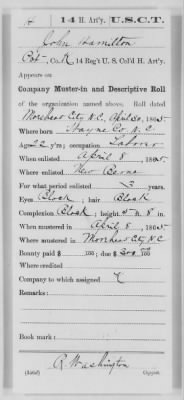 H | 14 H. Art'y. | U.S.C.T.
John Hamilton
Pvt., Co. K, 14 Reg't U. S. Col'd H. Art'y.
Appears on
Company Muster-in and Descriptive Roll
of the organization named above. Roll dated
Morehead City N.C., April 30, 1865
Where born Wayne Co. N.C.
Age 22 y'rs; occupation Laborer
When enlisted April 8, 1865
Where enlisted New Berne
For what period enlisted 3 years.
Eyes Black; hair Black
Complexion Black; height 5 ft. 8 in.
When mustered in April 8, 1865
Where mustered in Morehead City N.C.
Bounty paid $ 100; due $ 100
Where credited
Company to which assigned K
Remarks:
Book mark:
R. Washington
(545d) Copyist.